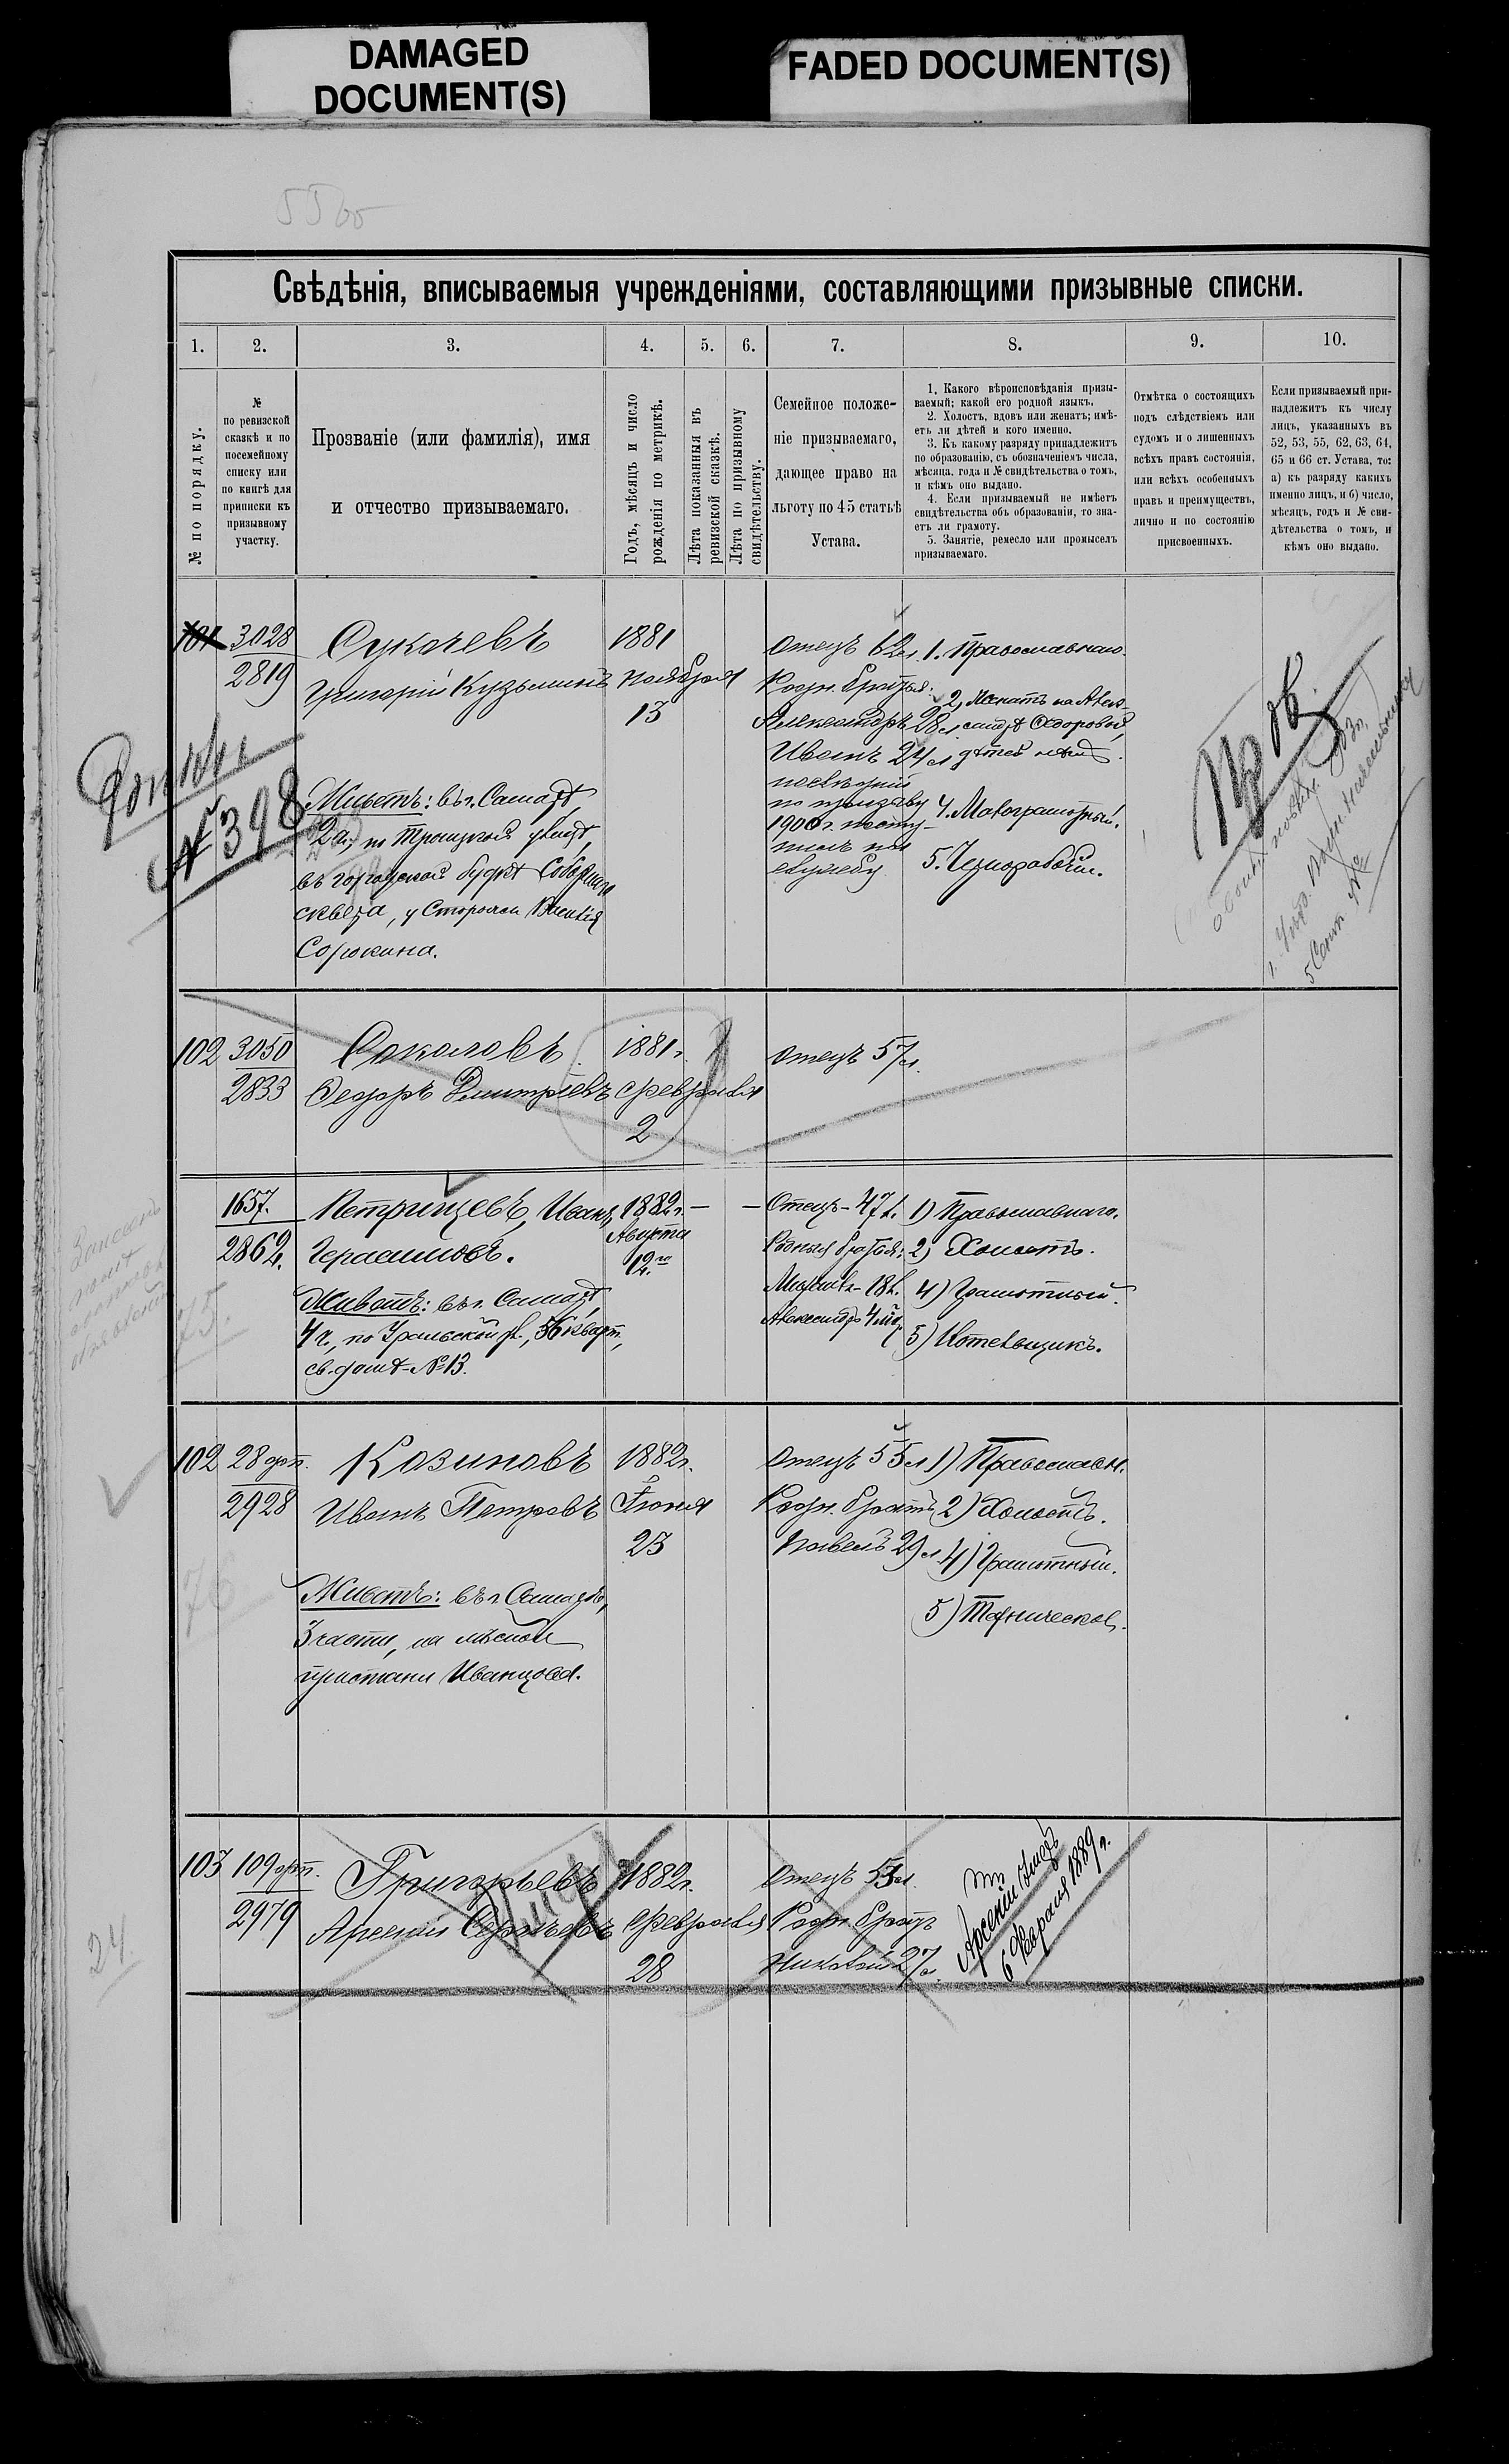 DAMAGED
DOCUMENT(S)
FADED DOCUMENT(S)
Свѣдѣнія, вписываемыя учрежденіями, составляющими призывные списки.
1. 2. 3. 4. 5. 6. 7. 8. 9. 10.
№ по порядку.
№
по ревизской
сказкѣ и по
посемейному
списку или
по книгѣ для
приписки къ
призывному
участку.
Прозваніе (или фамилія), имя
и отчество призываемаго.
Годъ, мѣсяцъ и число
рожденія по метрикѣ.
Лѣта показанныя въ
ревизской сказкѣ.
Лѣта по призывному
свидѣтельству.
Семейное положе-
ніе призываемаго,
дающее право на
льготу по 45 статьѣ
Устава.
1. Какого вѣроисповѣданія призы-
ваемый; какой его родной языкъ.
2. Холостъ, вдовъ или женатъ; имѣ-
етъ ли дѣтей и кого именно.
3. Къ какому разряду принадлежитъ
по образованію, съ обозначеніемъ числа,
мѣсяца, года и № свидѣтельства о томъ,
и кѣмъ оно выдано.
4. Если призываемый не имѣетъ
свидѣтельства объ образованіи, то зна-
етъ ли грамоту.
5. Занятіе, ремесло или промыселъ
призываемаго.
Отмѣтка о состоящихъ
подъ слѣдствіемъ или
судомъ и о лишенныхъ
всѣхъ правъ состоянія,
или всѣхъ особенныхъ
правъ и преимуществъ,
лично и по состоянію
присвоенныхъ.
Если призываемый при-
надлежитъ къ числу
лицъ, указанныхъ въ
52, 53, 55, 62, 63, 64,
65 и 66 ст. Устава, то:
а) къ разряду какихъ
именно лицъ, и б) число,
мѣсяцъ, годъ и № сви-
дѣтельства о томъ, и
кѣмъ оно выдано.
101 3028
2819
Сукачевъ
Григорій Кузьминъ
1881
ноября
13
№ 398
Живетъ: въ г. Самарѣ,
2 ч. по Троицкой улицѣ,
въ городской будкѣ Соборнаго
сквера, у Сторожа
Сорокина.
Отецъ 62 л.
Родн. братья:
Александръ 28 л.
Иванъ 24 л.
послѣдній
по призыву
1900 г. посту-
пилъ на
службу
1. Православнаго.
2. Женатъ на Алек-
сандрѣ Ѳедоровой,
дѣтей нѣтъ.
4. Малограмотный.
5. Чернорабочій.
102 3050
2833
Соколовъ
Ѳедоръ Дмитріевъ
1881 г.
февраля
2
Отецъ 57 л.
1657.
2862.
Петрищевъ, Иванъ
Герасимовъ.
1882 г.
Августа
12го
Живетъ: въ г. Самарѣ,
4 ч., по Уральской ул., 56 кварт.,
св. домѣ № 13.
Отецъ - 47 л.
Родныя братья:
Михаилъ - 18 л.
Александръ 4 мѣс.
1) Православнаго.
2) Холостъ.
4) Грамотный.
5) Котельщикъ.
75.
102 28 орт.
2928
Казиновъ
Иванъ Петровъ
1882 г.
Іюня
23
Живетъ: въ г. Самарѣ,
3 части, на лѣсной
пристани Иванцова.
Отецъ 55 л.
Родн. братъ
Павелъ 29 л.
1) Православн.
2) Холостъ.
4) Грамотный.
5)
76
103 109 орт.
2979
Григорьевъ
Арсеній Сергѣевъ
1882 г.
февраля
28
Отецъ 53 л.
Родн. братъ
Николай 27 л.
Арсеній умеръ
6 Февраля 1889 г.
24.